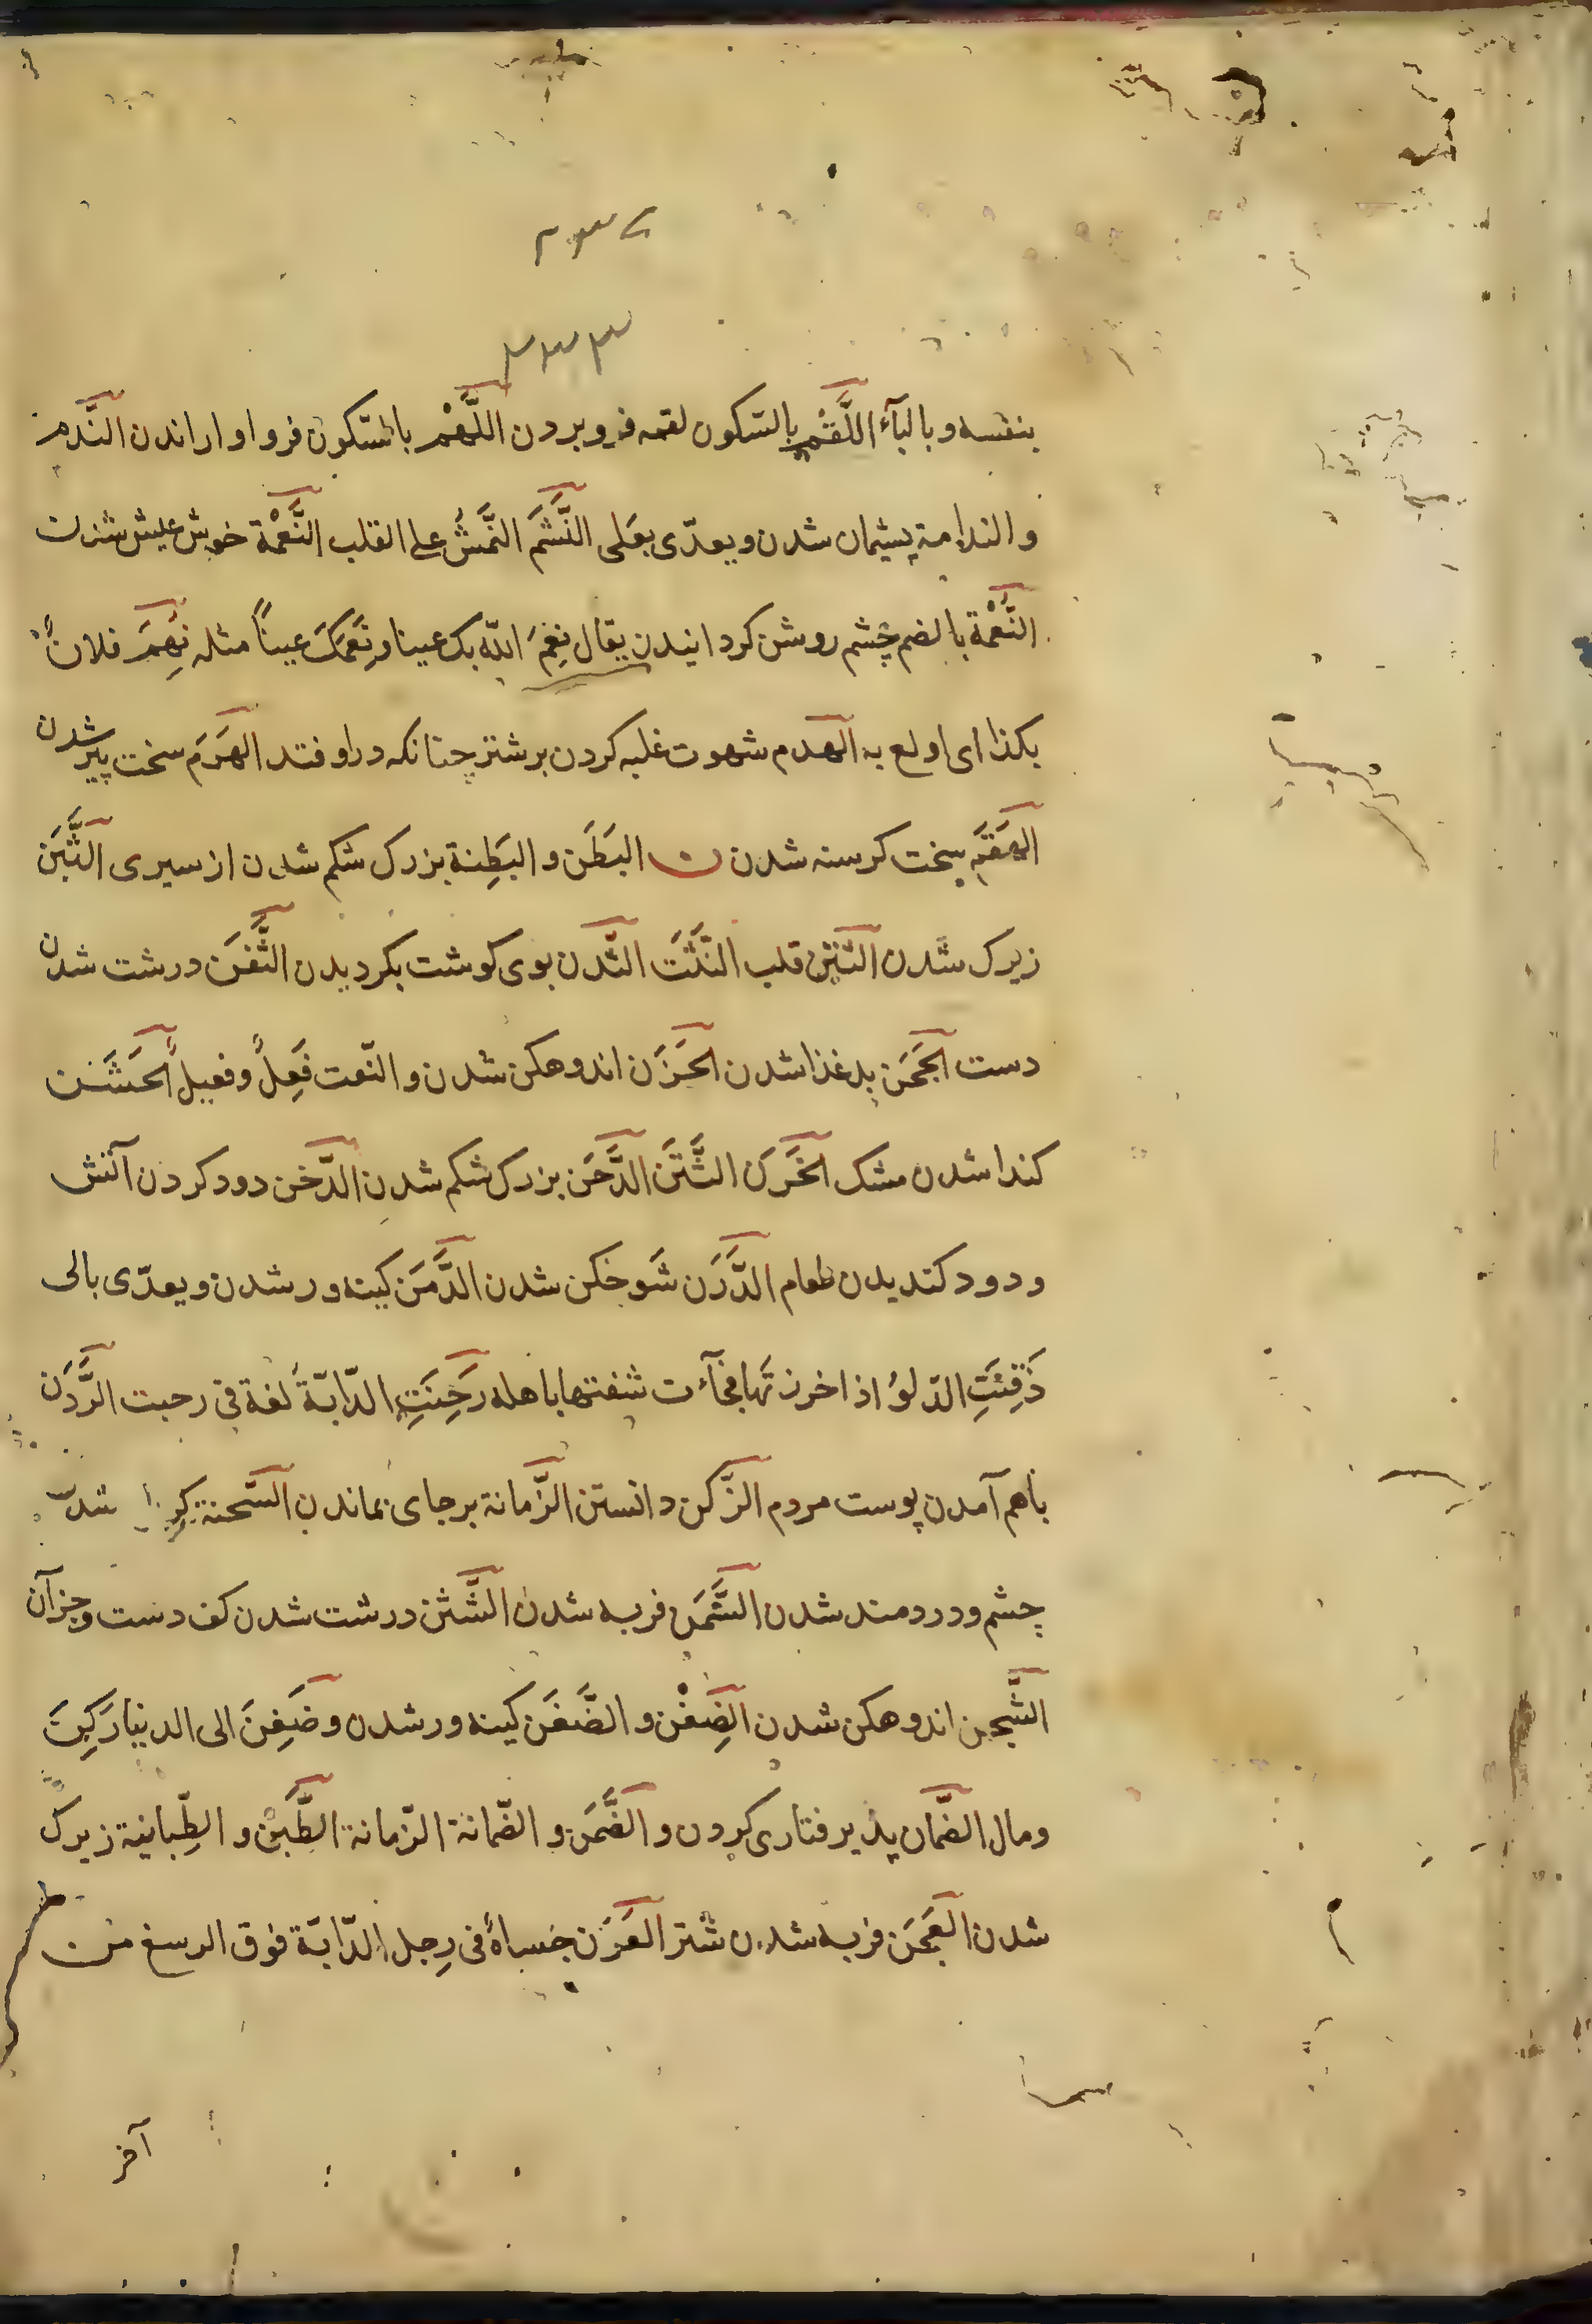 ۲۳۷
۲۳۳
بنفسه و بالبآء اللَّقْم بالسّكون لقمه فرو بردن اللَّهْم بالسّكون فرو اواراندن النَّدم
والندامة پشیمان شدن ویعدّی بعَلی النَّشَمَ النَّمَشُ علی القلب النَّعْمَة خوش عیش شدن
النُّعْمَة بالضم چشم روشن کردانیدن یقال نِعَمَ اللّه بک عینا ونَعِمَکَ عیناً مثله نِهِمَ فلانٌ
بکذا ای اولع به الهدم شهوت غلبه کردن بر شتر چنانکه در اوفتد الهَرَم سخت پیر شدن
الهَقَم سخت کرسنه شدن ن البَطَن و البَطِنة بزرک شکم شدن از سیری الثَّبَن
زیرک شدن الثَّنَن قلب النَّثَت الثَّدن بوی کوشت بکردیدن الثَّفَن درشت شدن
دست الجَحَن بد غذا شدن الحَزَن اندوهکن شدن والنّعت فَعِلٌ وفعیلٌ الحَشَن
کندا شدن مشک الخَرَن الثَّتَن الدَّحَن بزرک شکم شدن الدَّخن دود کردن آتش
و دود کندیدن طعام الدَّرَن شَوخکن شدن الدَّمَن کینه ور شدن ویعدّی بالی
ذَقِنَتِ الدّلوُ اذا خرزتها فجآءت شفتها باهله رَجِنَتِ الدّابّة لغة فی رجبت الرَّدَن
باهم آمدن پوست مردم الزَّکن دانستن الزَّمانة برجای بماندن السَّخنة شدن
چشم و دردمند شدن السَّمَن فربه شدن الشَّثن درشت شدن کف دست وجز آن
الشَّجن اندوهکن شدن الضِغْن و الضَّغَن کینه ور شدن وضَغِنَ الی الدنیا رَکِنَ
ومال الضَّمان پذیرفتاری کردن و الضَّمَن و الضّمانة الزّمانة الطَّبَن و الطِّبانیة زیرک
شدن العَجَن فربه شدن شتر العَرَن جُساةٌ فی رِجل الدّابّة فوق الرسغ من
آخر